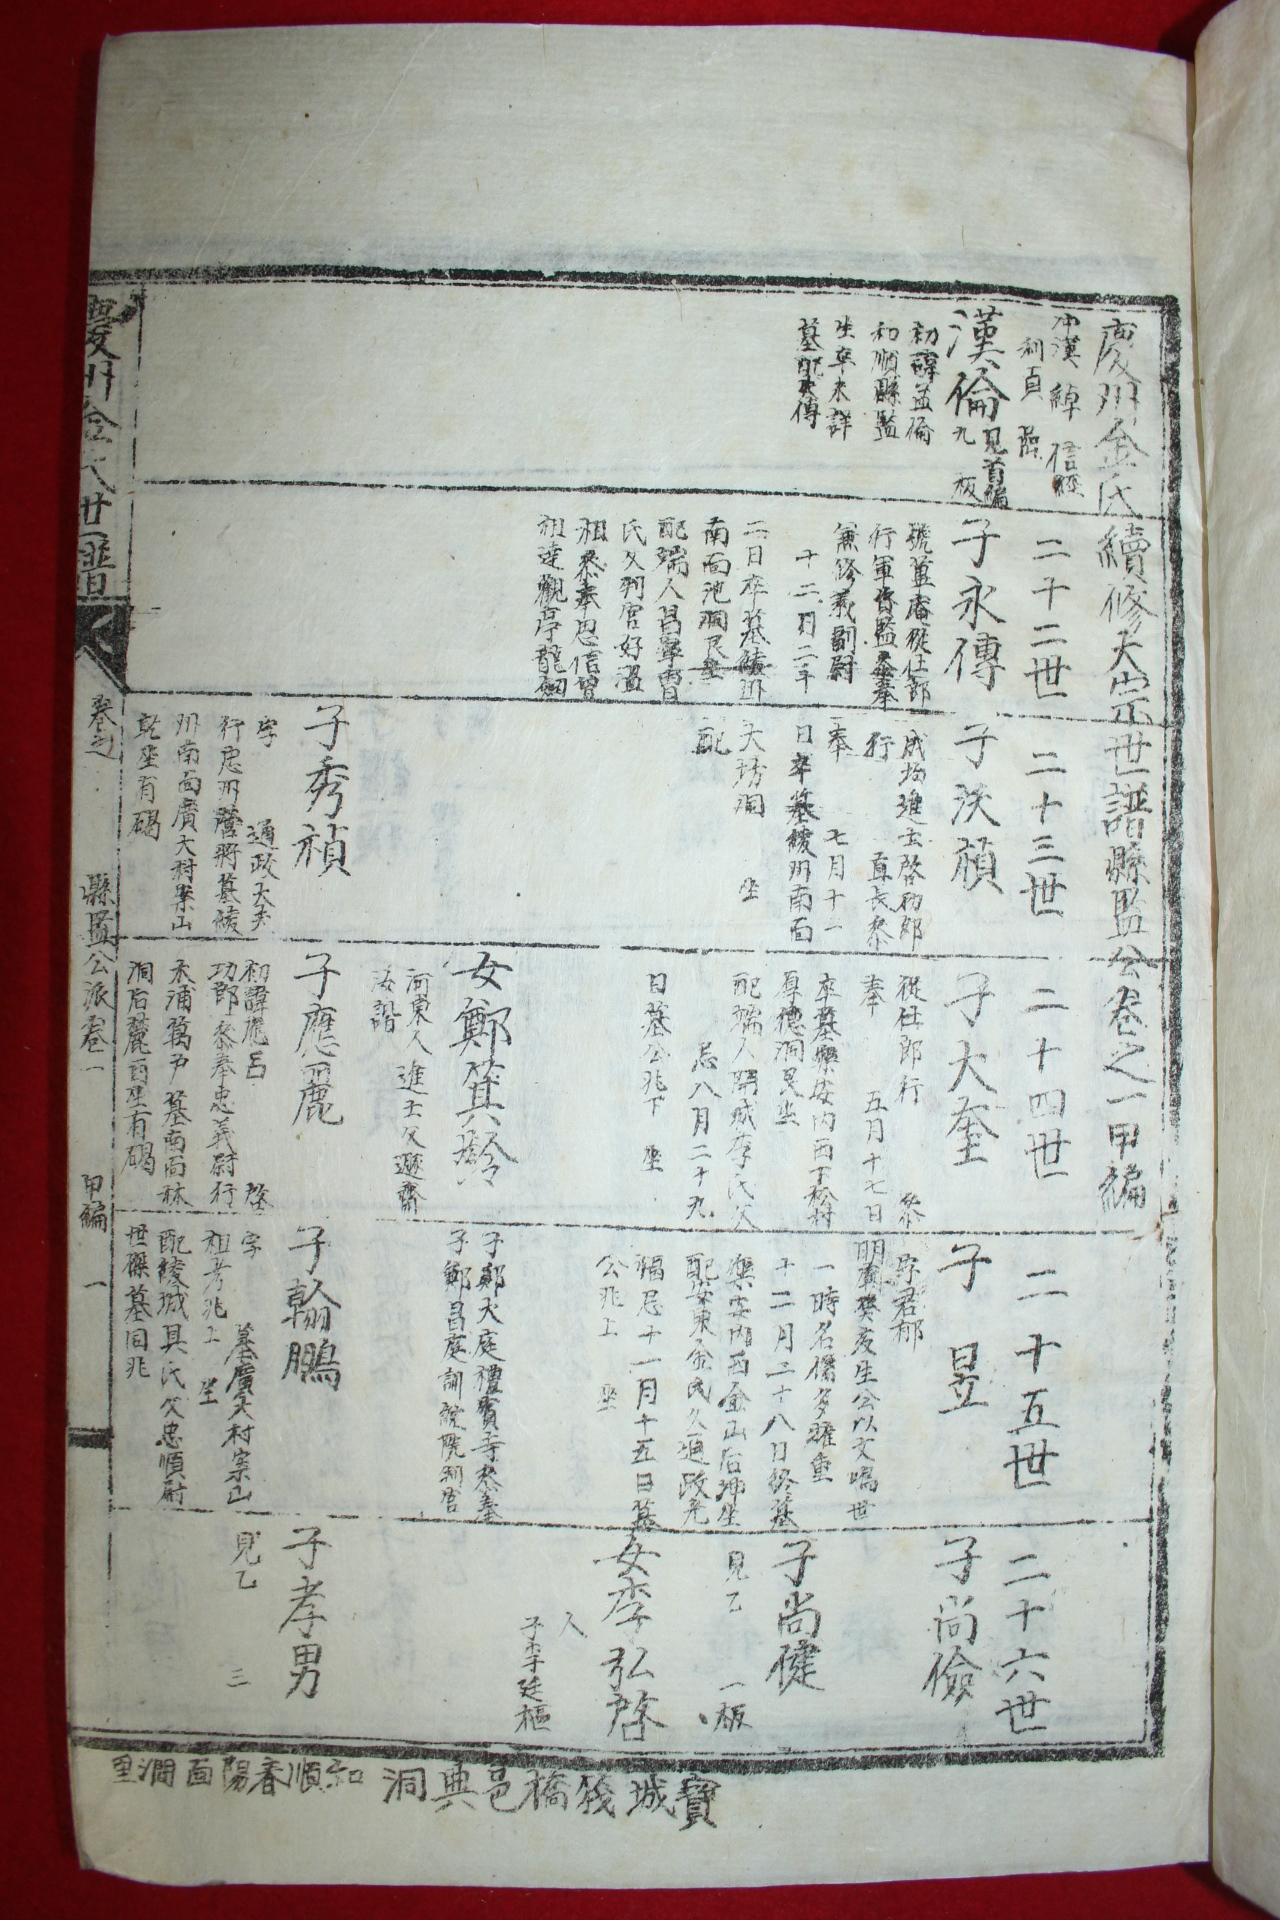 慶州金氏續修大宗世譜縣監公卷之一甲編
二十二世
二十三世
二十四世
二十五世
二十六世
仲漢
信
利貞
漢倫
見首編
九板
初諱益倫
和順縣監
生卒未詳
墓配失傳
子永傳
號藎庵從仕郎
行軍資監參奉
兼修義副尉
十二月二十
二日卒墓綾州
南面池洞艮坐
配端人昌寧曺
氏父判官好溫
祖參奉思信曾
祖達觀亭龍
子沃禎
成均進士啓功郎
行 直長參
奉 七月十一
日卒墓綾州南面
大塝洞 坐
配
子秀禎
字 通政大夫
行忠州營將墓綾
州南面廣大村案山
乾坐有碣
子大奎
從仕郎行 參
奉 五月十七日
卒墓樂安內面下松村
厚德洞艮坐
配端人開城李氏父
忌八月二十九
日墓公兆下 坐
女鄭箕齡
河東人進士父遯齋
汝諧
子應麗
初諱應呂 啓
功郎參奉忠義尉行
禾浦萬戶墓南面林
洞后麓酉坐有碣
子昱
字君郁
明宗癸亥生公以文鳴世
一時名儒多推重
十二月二十八日終墓
樂安內面金山后坤坐
配安東金氏父通政光
福忌十一月十五日墓
公兆上 坐
子鄭大庭禮賓寺參奉
子鄭昌庭訓鍊院判官
子翰鵬
字 墓廣大村案山
祖考兆上 坐
配綾城具氏父忠順尉
世磔墓同兆
子尚儉
子尚健
見乙 一板
女李弘啓
人
子李廷樞
子孝男
見乙 三
慶州金氏世譜
卷之
縣監公派卷一
甲編
一
寶城筏橋邑典洞
和順春陽面澗里